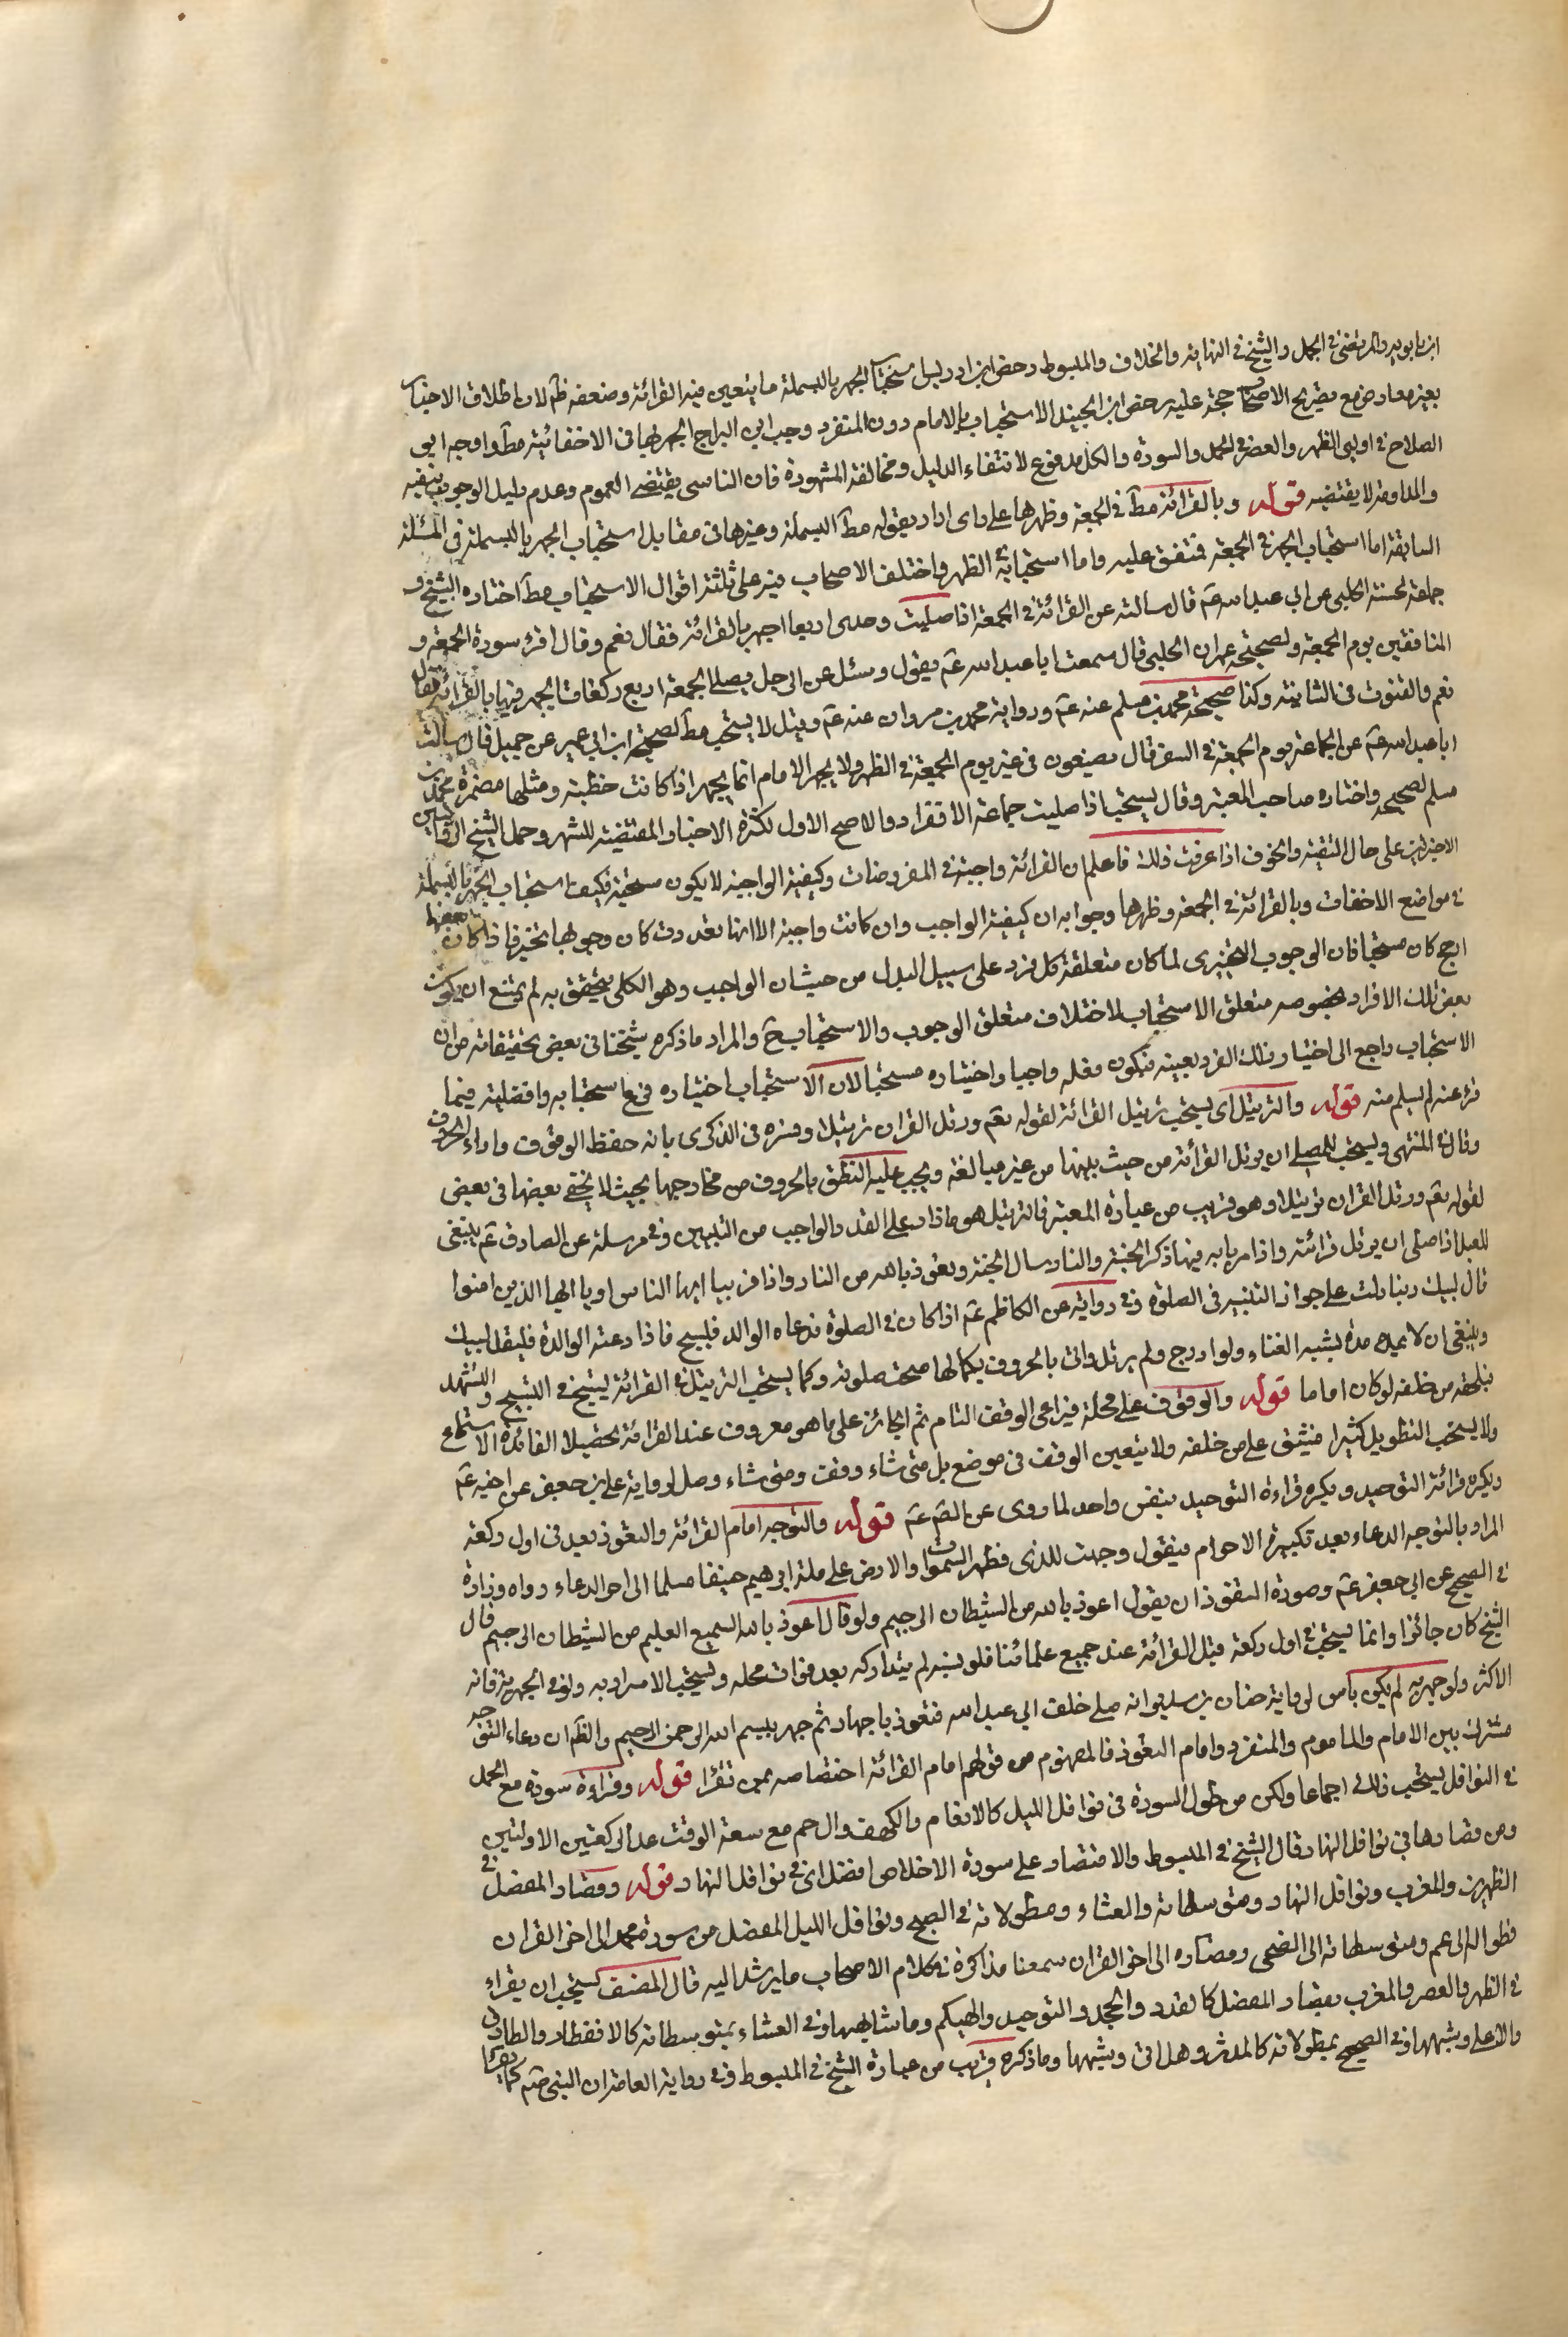 ابن بابويه والمرتضى في الجمل والشيخ في النهاية والخلاف والمبسوط وخص ابن ادريس استحباب الجهر بالبسملة ما يتعين فيه القرائة وضعفه ظ لان اطلاق الاخبار
بغير معارض مع تصريح الاصحاب حجة عليه وخص ابن الجنيد الاستحباب بالامام دون المنفرد وجب ابن البراج الجهر بها في الاخفائية مط واوجبه ابي
الصلاح في اوليي الظهر والعصر في الحمد والسورة والكل مدفوع لانتفاء الدليل ومخالفة المشهورة فان التاسي يقتضي العموم وعدم دليل الوجوب ينفيه
والمداومة لا يقتضيه قوله وبالقرائة مط في الجمعة وظهرها على راى اراد بقوله مط البسملة وغيرها في مقابل استحباب الجهر بالبسملة في المسئلة
السابقة اما استحباب الجهر في الجمعة فمتفق عليه واما استحبابه في الظهر واختلف الاصحاب فيه على ثلثة اقوال الاستحباب مط اختاره الشيخ و
جماعة لحسنة الحلبي عن ابي عبد الله عم قال سالته عن القرائة في الجمعة اذا صليت وحدى اربعا اجهر بالقرائة فقال نعم وقال اقرء سورة الجمعة و
المنافقين يوم الجمعة ولصحيحة عمران الحلبي قال سمعت ابا عبد الله عم يقول وسئل عن الرجل يصلي الجمعة اربع ركعات ايجهر فيها بالقرائة فقال
نعم والقنوت في الثانية وكذا صحيحة محمد بن مسلم عنه عم ورواية محمد بن مروان عنه عم وقيل لا يستحب مط لصحيحة ابن ابي عمير عن جميل قال سالت
ابا عبد الله عم عن الجماعة يوم الجمعة في السفر قال يصنعون في غير يوم الجمعة في الظهر ولا يجهر الامام انما يجهر اذا كانت خطبة ومثلها مضمرة محمد بن
مسلم الصحيحة واختاره صاحب المعتبر وقال يستحب اذا صليت جماعة لا افرادا والاصح الاول لكثرة الاخبار المقتضية للشهر وحمل الشيخ الروايتين
الاخيرتين على حال التقية والخوف اذا عرفت ذلك فاعلم ان القرائة واجبة في المفروضات وكيفية الواجبة لا يكون مستحبة فكيف استحباب الجهر بالبسملة
في مواضع الاخفات وبالقرائة في الجمعة وظهرها وجوابه ان كيفية الواجب وان كانت واجبة الا انها تعددت كان وجوبها تخيريا فاذا كان بعضها
ارجح كان مستحبا فان الوجوب التخييرى لما كان متعلقة كل فرد على سبيل البدل من حيث ان الواجب وهو الكلى يتحقق به لم يمتنع ان يكون
بعض تلك الافراد بخصوصه متعلق الاستحباب لاختلاف متعلق الوجوب والاستحباب ح والمراد ما ذكره شيخنا في بعض تحقيقاته من ان
الاستحباب راجع الى اختيار ذلك الفرد بعينه فيكون فعله واجبا واختياره مستحبا لان الاستحباب اختياره فرع استحبابه وافضليته فيما
فرء عنه لم يسلم منه قوله والترتيل اى يستحب ترتيل القرائة لقوله تعم ورتل القران ترتيلا وفسره في الذكرى بانه حفظ الوقوف واداء الحروف
وقال في المنتهى ويستحب للمصلي ان يرتل القرائة من حيث يبينها من غير مبالغة ويجب عليه النطق بالحروف من مخارجها بحيث لا يخفى بعضها في بعض
لقوله تعم ورتل القران ترتيلا وهو قريب من عبارة المعتبر فالترتيل هو ما زاد على القدر الواجب من التبيين وفي مرسلة عن الصادق عم ينبغى
للعبد اذا صلى ان يرتل قرائته واذا مر باية فيها ذكر الجنة والنار سال الجنة وتعوذ بالله من النار واذا مر بيا ايها الناس او يا ايها الذين امنوا
قال لبيك ربنا دلت على جواز التلبية في الصلوة وفي رواية عن الكاظم عم اذا كان في الصلوة فدعاه الوالد فليسبح فاذا دعته الوالدة فليقل لبيك
وينبغى ان لا يمده مدا يشبه الغناء ولو ادرج ولم يرتل واتى بالحروف بكمالها صحت صلوته وكما يستحب الترتيل في القرائة يستحب في التسبيح والتشهد
فيلحقه من خلفه لو كان اماما قوله والوقوف على محله فيراعى الوقف التام ثم الجائز على ما هو معروف عند القرائة تحصيلا لفائدة الاستماع
ولا يستحب التطويل كثيرا فيشق على من خلفه ولا يتعين الوقف في موضع بل متى شاء وقف ومتى شاء وصل لرواية علي بن جعفر عن اخيه عم
ويكره قرائة التوحيد ويكره قراءة التوحيد بنفس واحد لما روى عن الص عم قوله والتوجه امام القرائة والتعوذ بعد في اول ركعة
المراد بالتوجه الدعاء بعد تكبيرة الاحرام فيقول وجهت للذى فطر السموات والارض على ملة ابرهيم حنيفا مسلما الى اخر الدعاء رواه زرارة
في الصحيح عن ابي جعفر عم وصورة التعوذ ان يقول اعوذ بالله من الشيطان الرجيم ولو قال اعوذ بالله السميع العليم من الشيطان الرجيم قال
الشيخ كان جائزا وانما يستحب في اول ركعة قبل القرائة عند جميع علمائنا فلو نسيه لم يتداركه بعد فوات محله ويستحب الاسرار به ولو في الجهرية قاله
الاكثر ولو جهر به لم يكن باس لرواية حنان بن سدير انه صلى خلف ابي عبد الله فتعوذ باجهار ثم جهر ببسم الله الرحمن الرحيم والظ ان دعاء التوجه
مشترك بين الامام والماموم والمنفرد وامام التعوذ فالمفهوم من قولهم امام القرائة اختصاصه بمن تقرا قوله وقراءة سورة مع الحمد
في النوافل يستحب ذلك اجماعا ولكن من طول السورة في نوافل الليل كالانعام والكهف وال حم مع سعة الوقت عدا الركعتين الاولتين
ومن قصارها في نوافل النهار قال الشيخ في المبسوط والاقتصار على سورة الاخلاص افضل اى في نوافل النهار قوله وقصار المفصل في
الظهرين والمغرب ونوافل النهار ومتوسطاته والعشاء ومطولاته في الصبح ونوافل الليل المفصل من سورة محمد الى اخر القران
فطواله الى عم ومتوسطاته الى الضحى وقصاره الى اخر القران سمعنا مذاكرة في كلام الاصحاب ما يرشد اليه قال المصنف يستحب ان يقراء
في الظهر والعصر والمغرب بقصار المفصل كالقدر والجحد والتوحيد والهيكم وما شابهها وفي العشاء بمتوسطاته كالانفطار والطارق
والاعلى وشبهها وفي الصبح بمطولاته كالمدثر وهل اتى وشبهها وما ذكره قريب من عبارة الشيخ في المبسوط وفي رواية العامة ان النبي صم كان يقرا